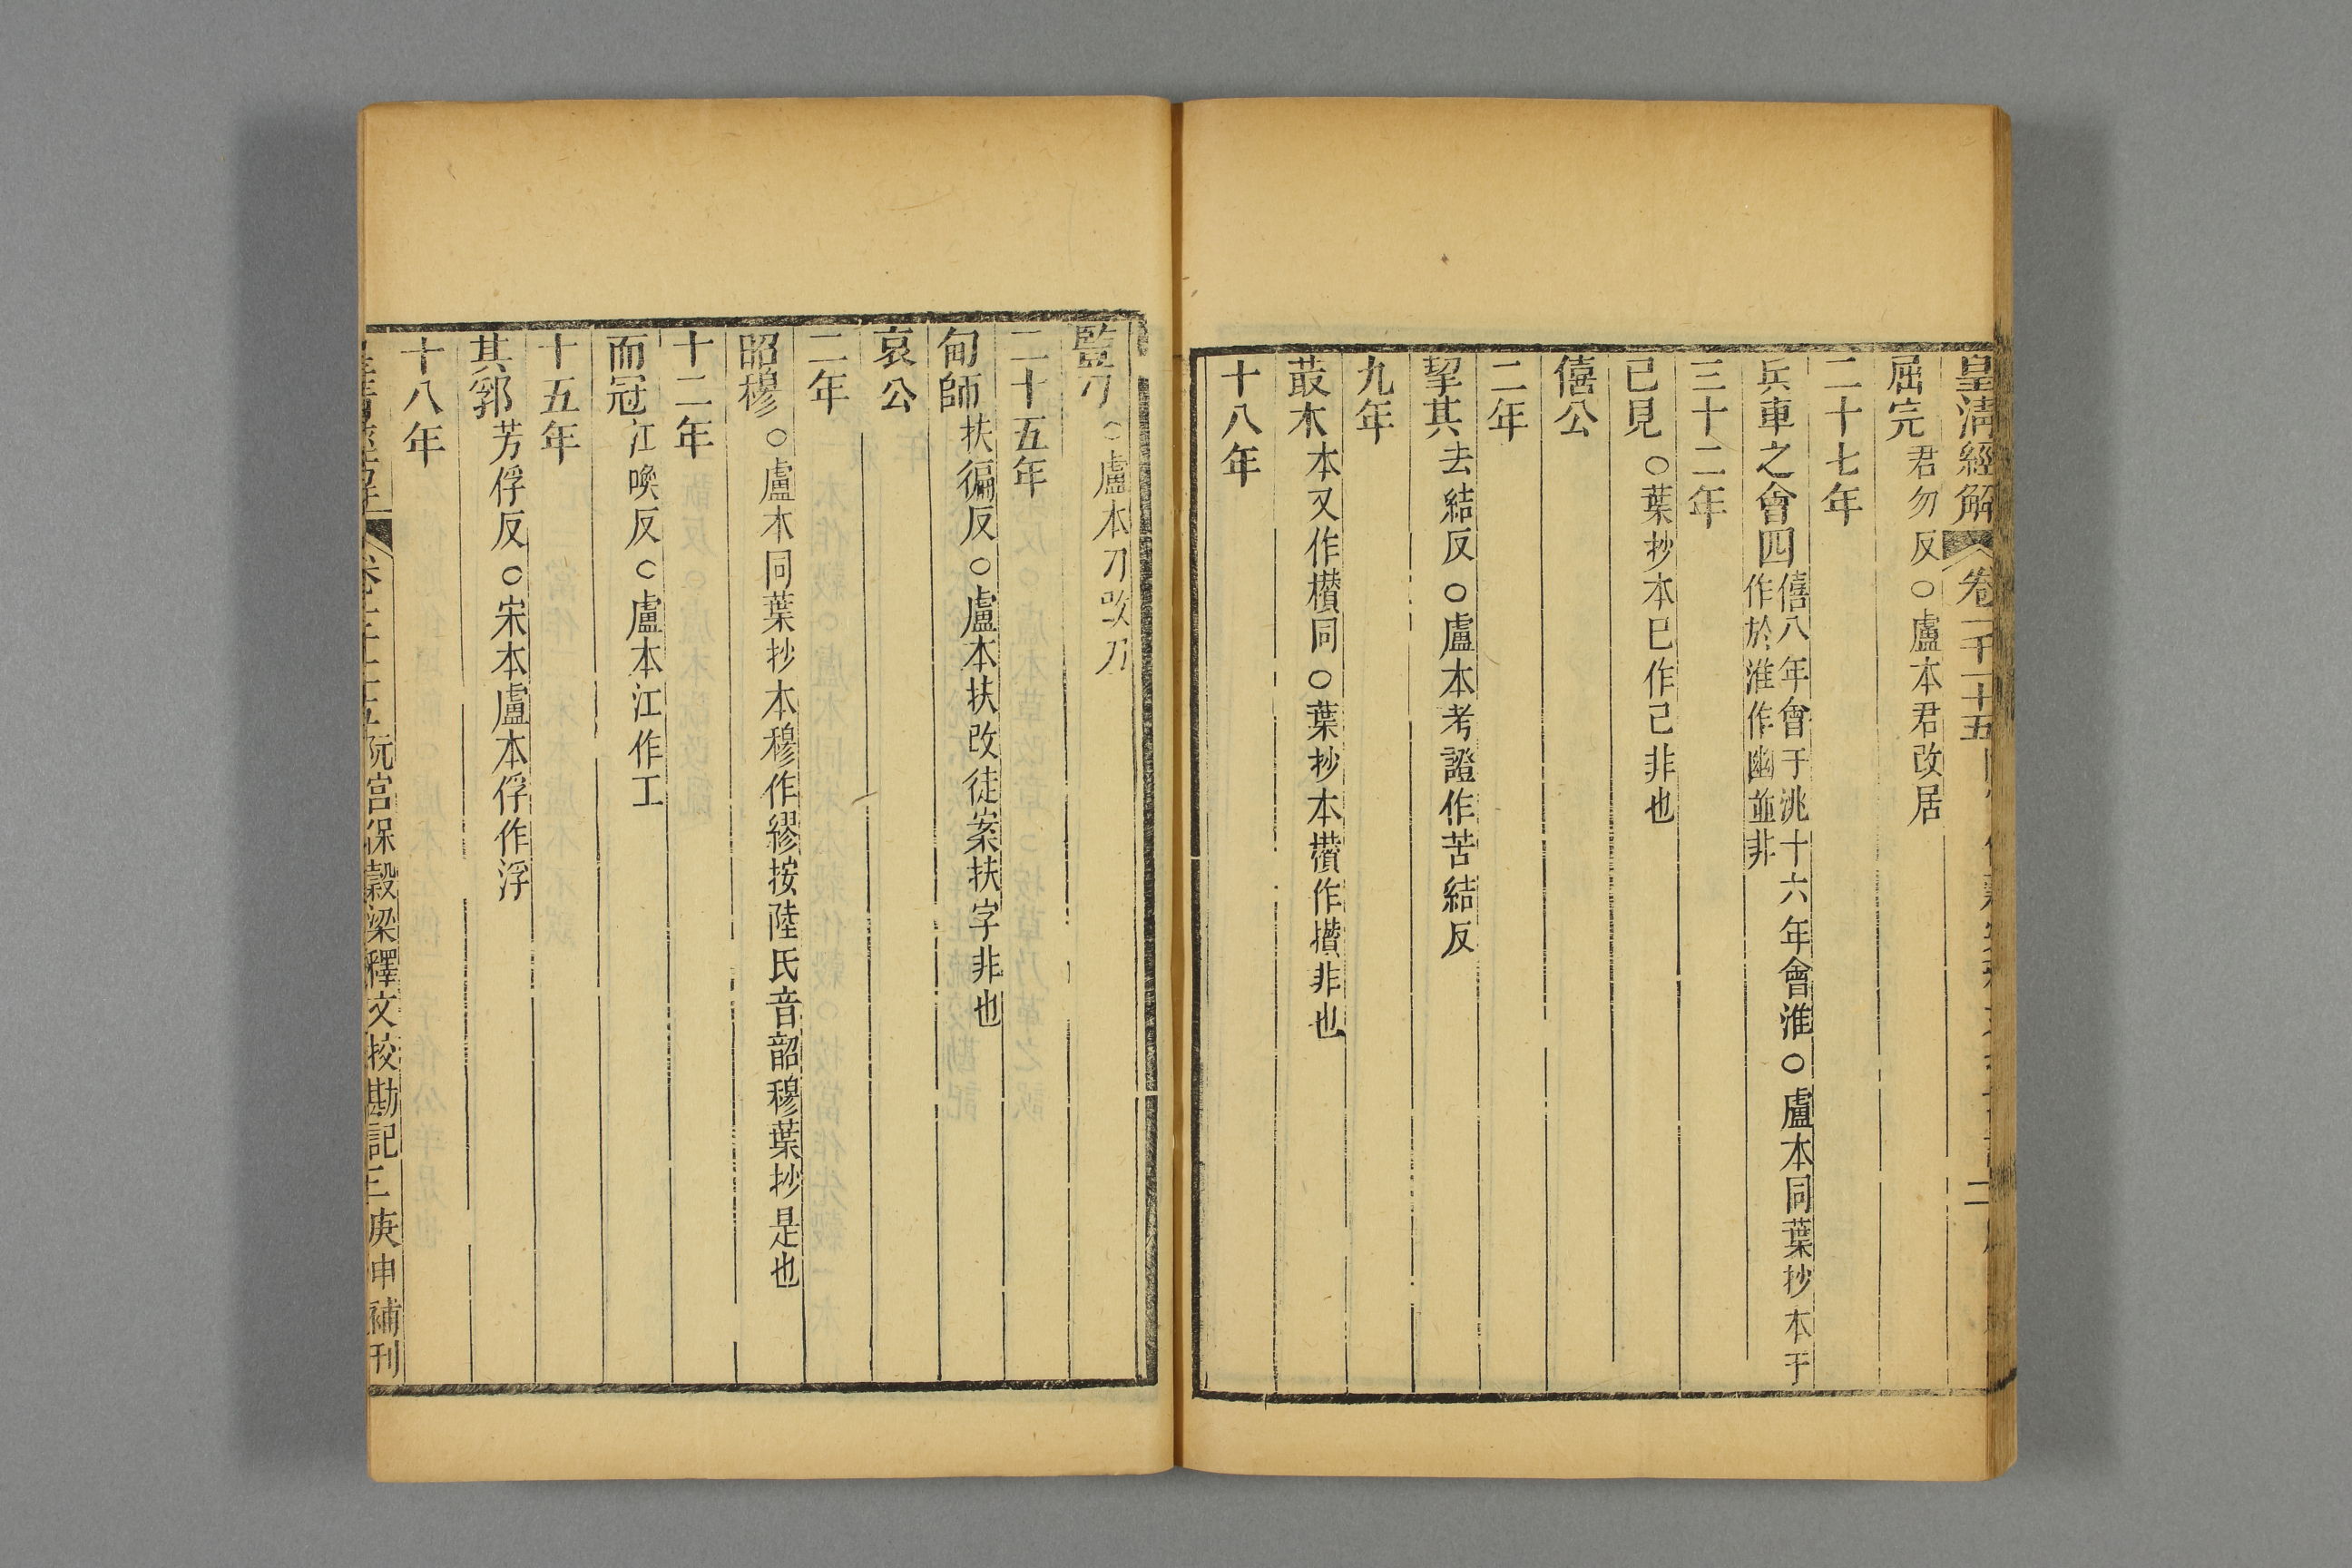 皇清經解 卷一千一十五 二
屈完君勿反○盧本君改居
二十七年
兵車之會四僖八年會于洮十六年會淮○盧本同葉抄本于
作於淮作幽並非
三十二年
已見○葉抄本巳作己非也
僖公
二年
挈其去結反○盧本考證作苦結反
九年
菆木本又作欑同○葉抄本攢作攅非也
十八年
豎刀○盧本刀改刁
二十五年
甸師扶徧反○盧本扶改徒案扶字非也
哀公
二年
昭穆○盧本同葉抄本穆作繆按陸氏音韶穆葉抄是也
十二年
而冠江喚反○盧本江作工
十五年
其郛芳俘反○宋本盧本俘作浮
十八年
阮宮保穀梁釋文挍勘記三 庚申補刊